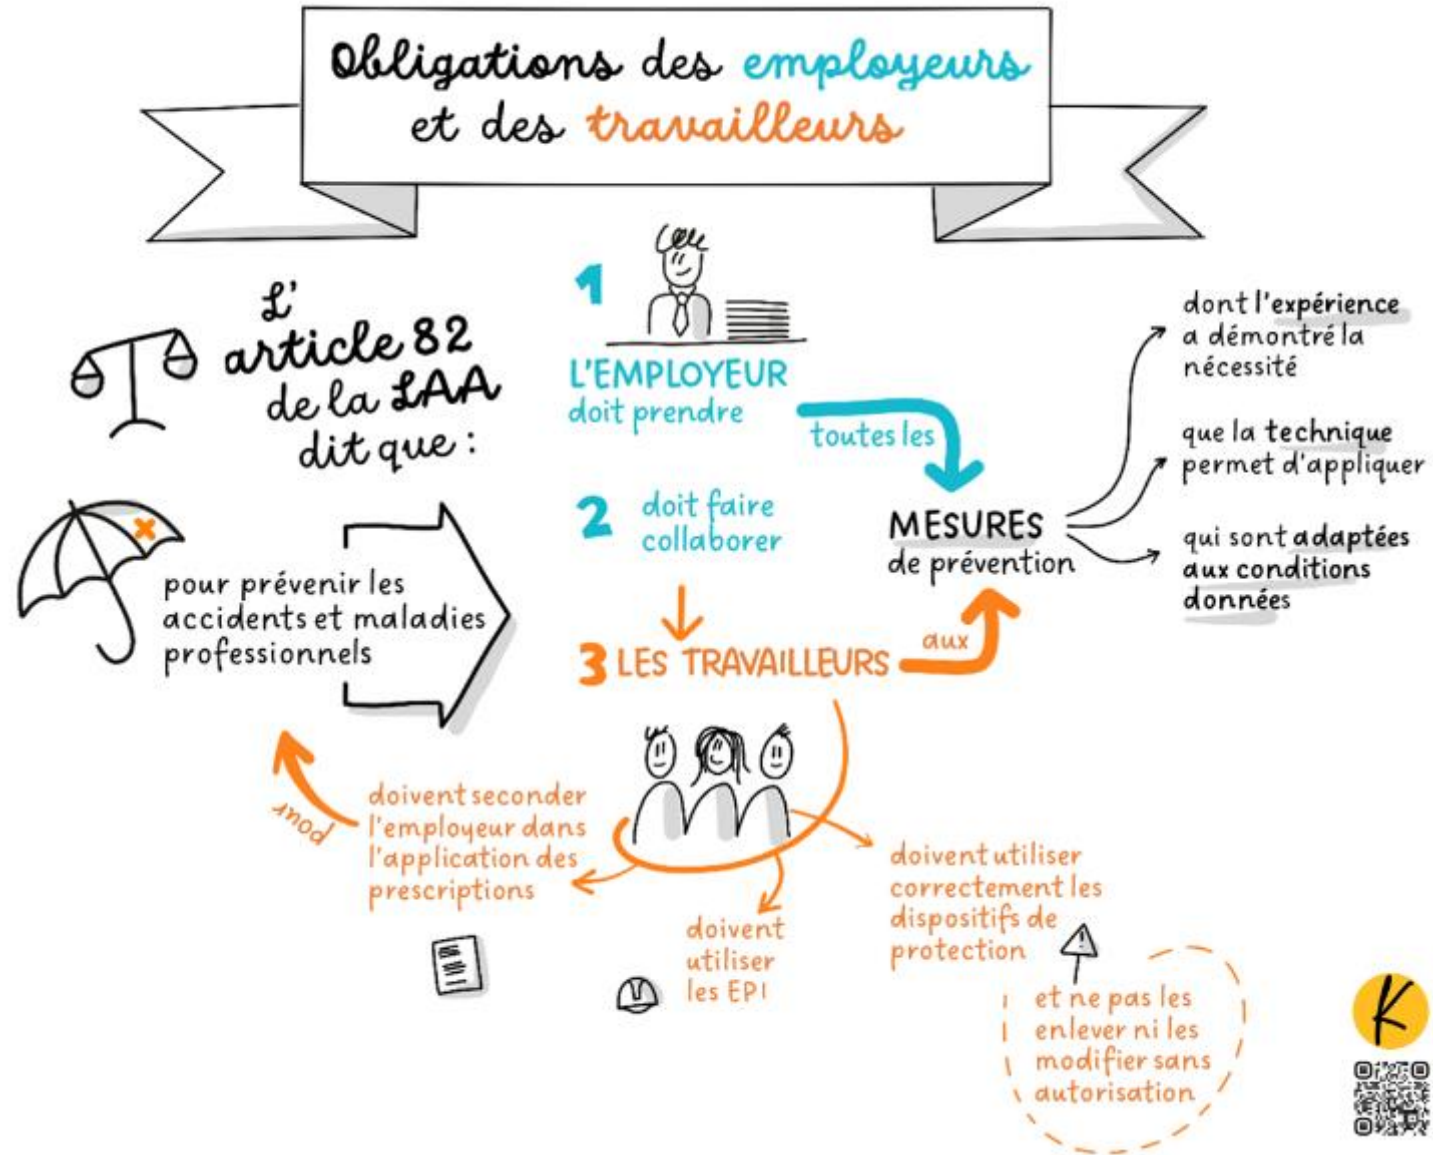 Obligations des employeurs
et des travailleurs
L'
article 82
de la LAA
dit que :
pour prévenir les
accidents et maladies
professionnels
1
L'EMPLOYEUR
doit prendre
toutes les
MESURES
de prévention
dont l'expérience
a démontré la
nécessité
que la technique
permet d'appliquer
qui sont adaptées
aux conditions
données
2
doit faire
collaborer
3 LES TRAVAILLEURS
aux
doivent seconder
l'employeur dans
l'application des
prescriptions
pour
doivent
utiliser
les EPI
doivent utiliser
correctement les
dispositifs de
protection
et ne pas les
enlever ni les
modifier sans
autorisation
K